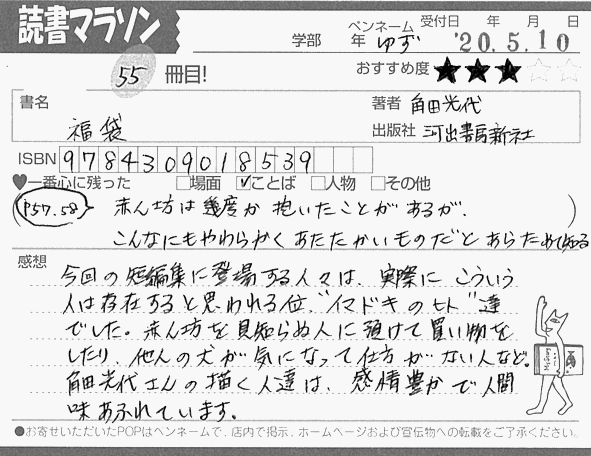 読書マラソン
学部 年 ペンネーム ゆず 受付日 年 月 日 '20.5.10
55 冊目!
おすすめ度 ★★★☆☆
書名 福袋
著者 角田光代
出版社 河出書房新社
ISBN 9784309018539
♥一番心に残った □場面 ☑ことば □人物 □その他
(P57.58) 赤ん坊は幾度か抱いたことがあるが、
こんなにもやわらかくあたたかいものだとあらためて知る
感想
今回の短編集に登場する人々は、実際にこういう
人は存在すると思われる位、"イマドキのヒト"達
でした。赤ん坊を見知らぬ人に預けて買い物を
したり、他人の犬が気になって仕方がない人など。
角田光代さんの描く人達は、感情豊かで人間
味あふれています。
●お寄せいただいたPOPはペンネームで、店内で掲示、ホームページおよび宣伝物への転載をご了承ください。